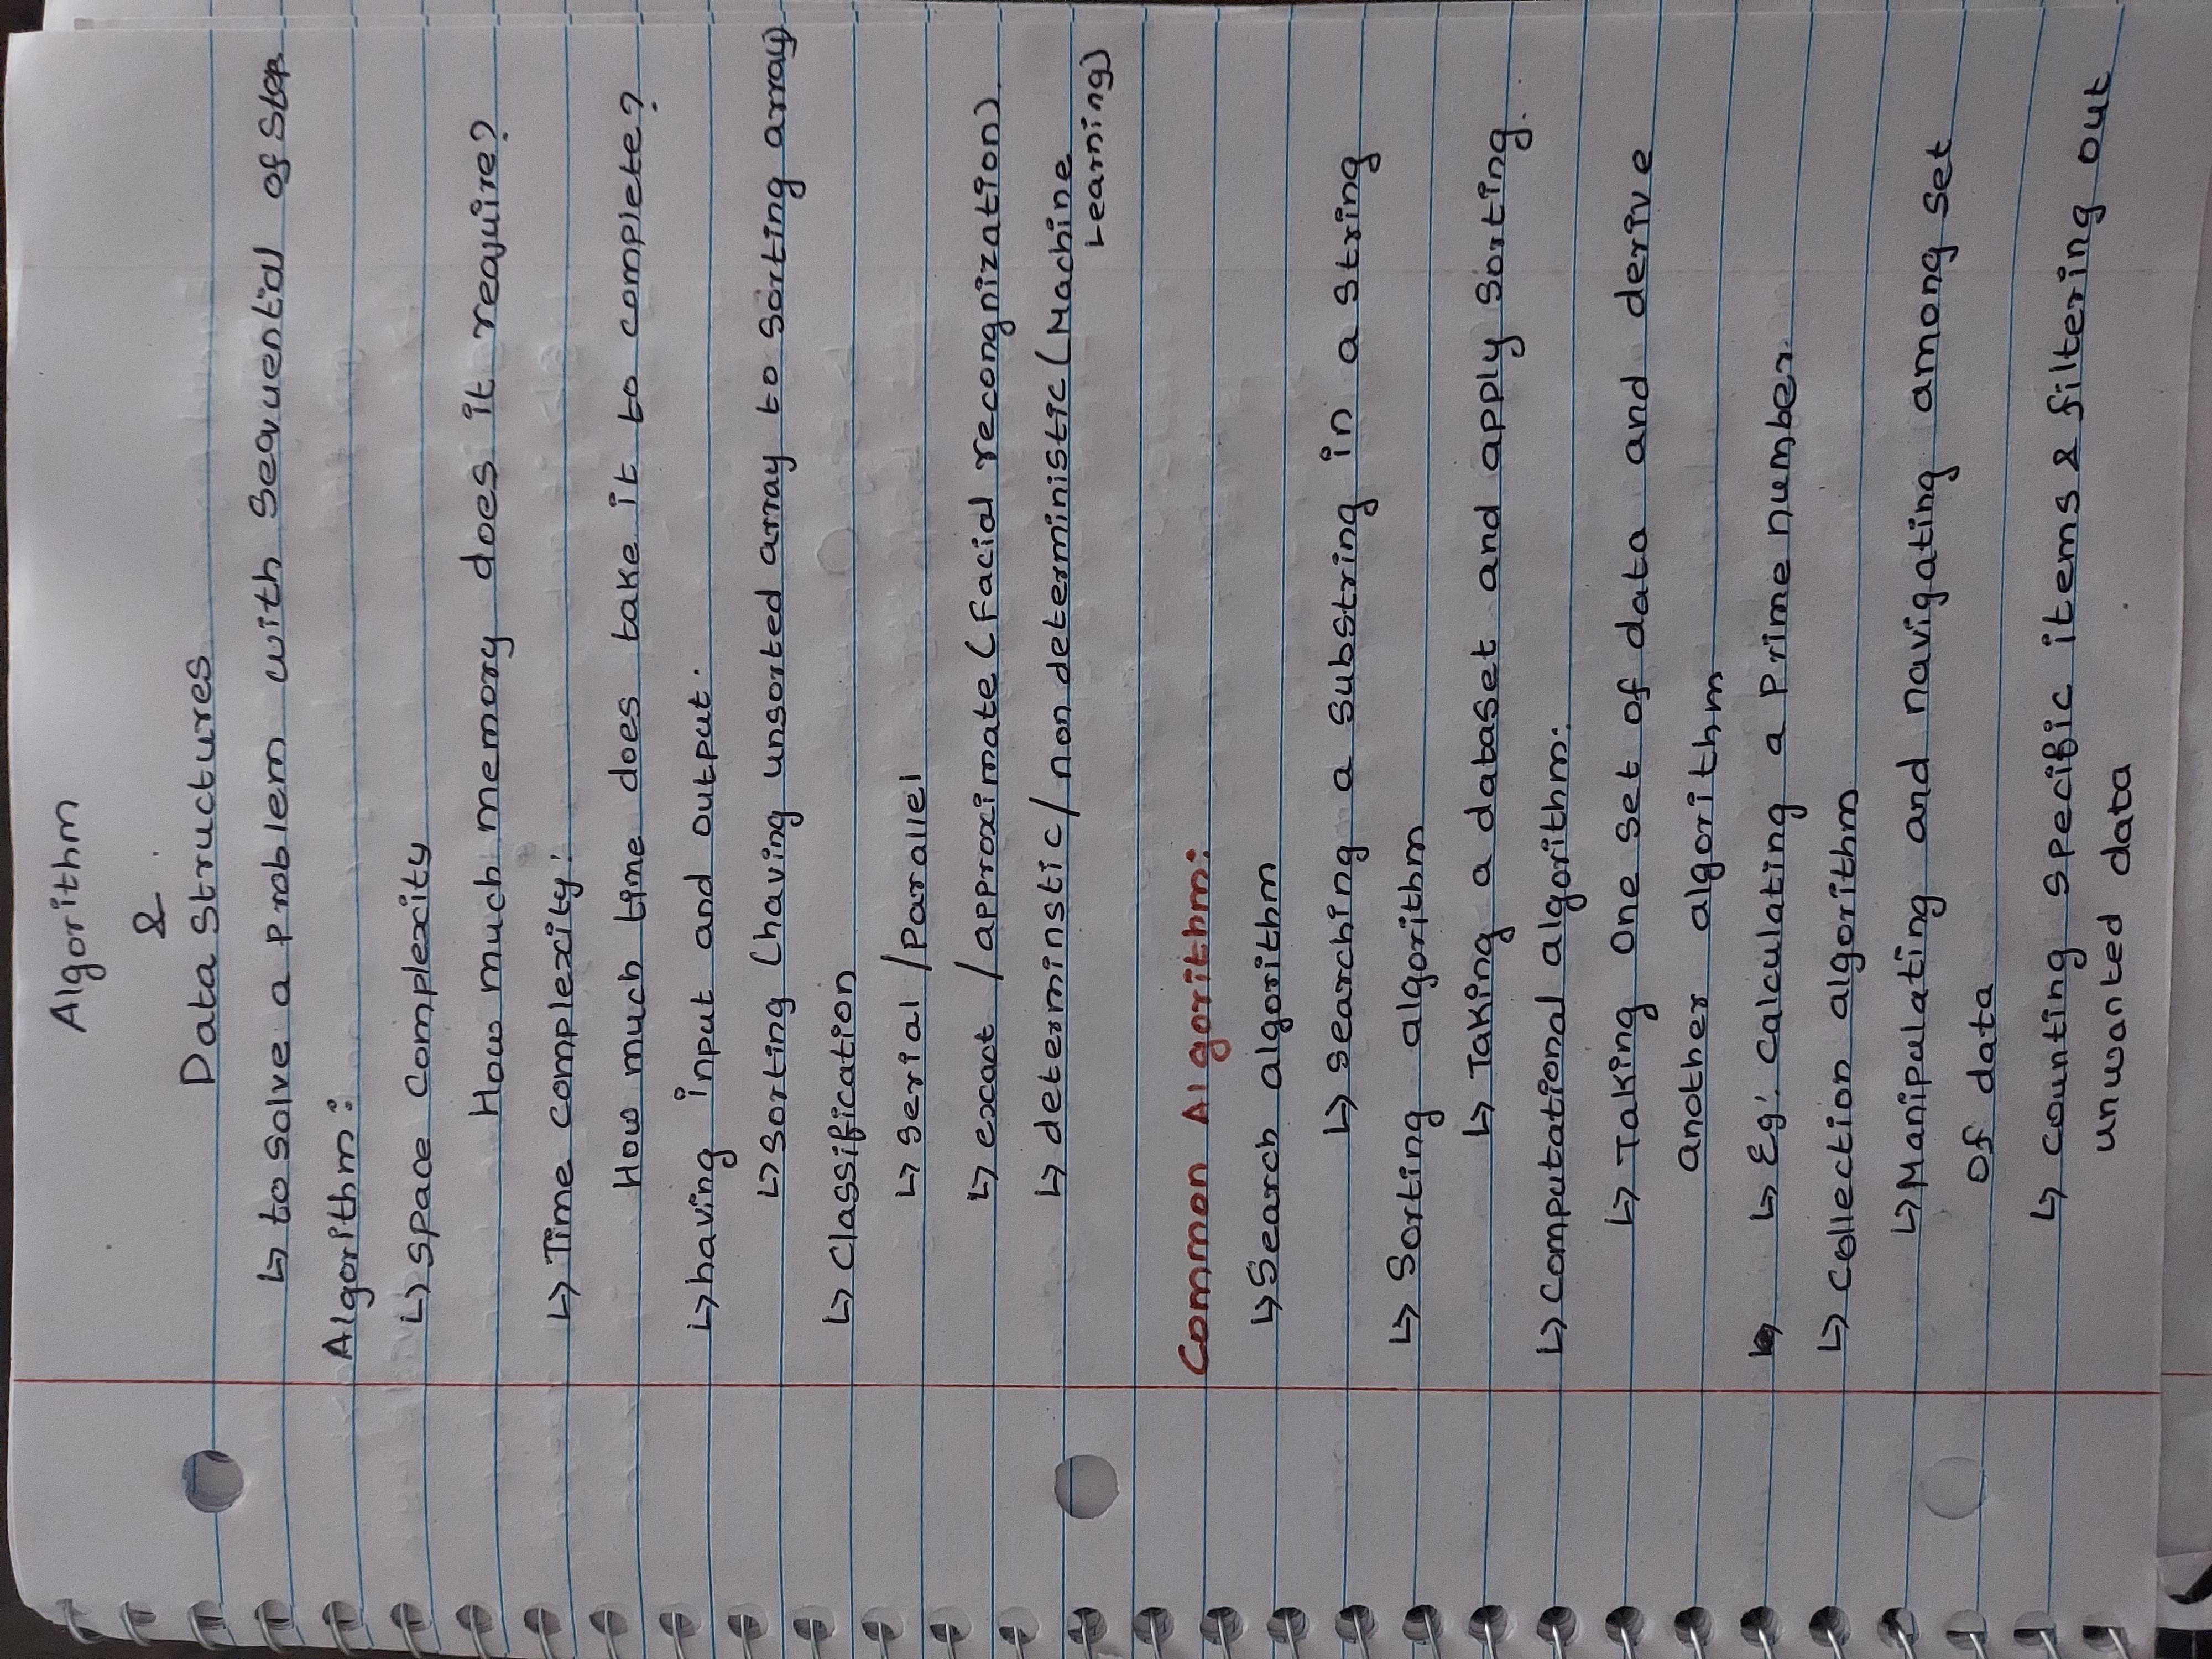 Algorithm
&
Data Structures
↳ to solve a problem with sequential of step
Algorithm:
↳ space complexity
How much memory does it reaquire?
↳ Time complexity:
How much time does take it to complete?
↳ having input and output.
↳ sorting (having unsorted array to sorting array)
↳ Classification
↳ serial / Parallel
↳ excact / approximate (Facial recongnization).
↳ determinstic / non deterministic (Machine
Learning)
Common Algorithm:
↳ Search algorithm
↳ searching a substring in a string
↳ Sorting algorithm
↳ Taking a dataset and apply sorting.
↳ Computational algorithm:
↳ Taking one set of data and derive
another algorithm
↳ Eg: calculating a prime number
↳ collection algorithm
↳ Manipulating and navigating among set
of data
↳ counting specific items & filtering out
unwanted data